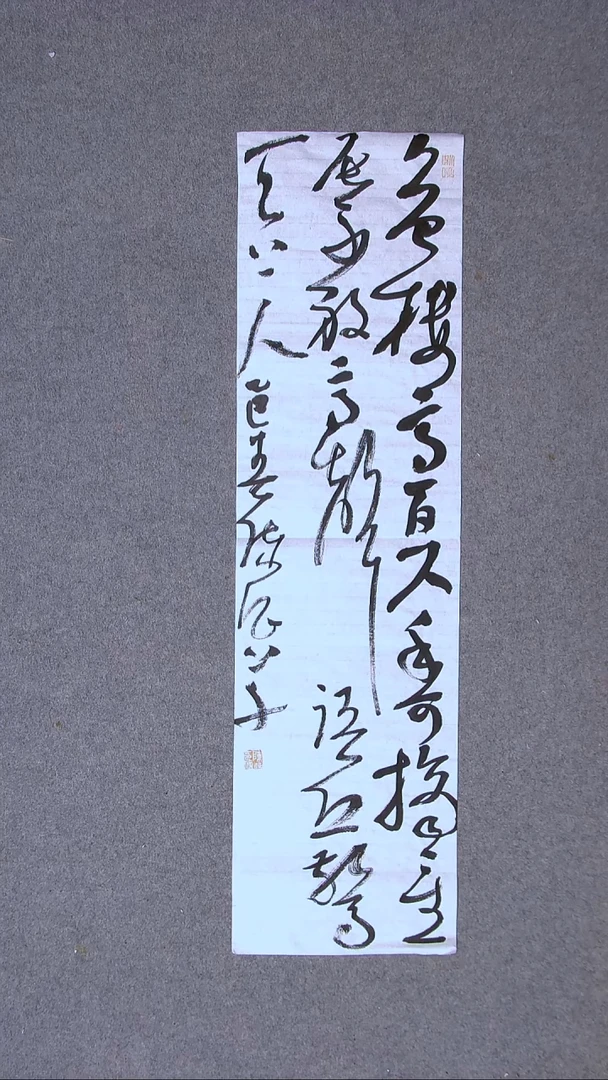 危樓高百尺手可摘星
辰不敢高聲語恐驚
天上人